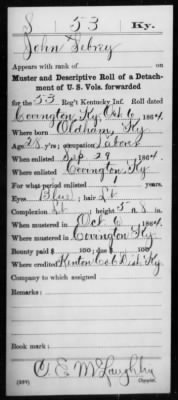 S 53 Ky.
John Sebrey
Appears with rank of on
Muster and Descriptive Roll of a Detach-
ment of U. S. Vols. forwarded
for the 53 Reg't Kentucky Inf. Roll dated
Covington Ky, Oct 6, 1864.
Where born Oldham, Ky.
Age 28 y'rs; occupation Labour
When enlisted Sep. 29, 1864.
Where enlisted Covington Ky.
For what period enlisted 1 years.
Eyes Blue; hair Lt.
Complexion Lt; height 5 ft. 8 in.
When mustered in Oct 6, 1864.
Where mustered in Covington Ky.
Bounty paid $ 100; due $ 100
Where credited Kenton Co 6 Dist. Ky.
Company to which assigned
Remarks:
Book mark:
C. E. McLaughlin
(339) Copyist.